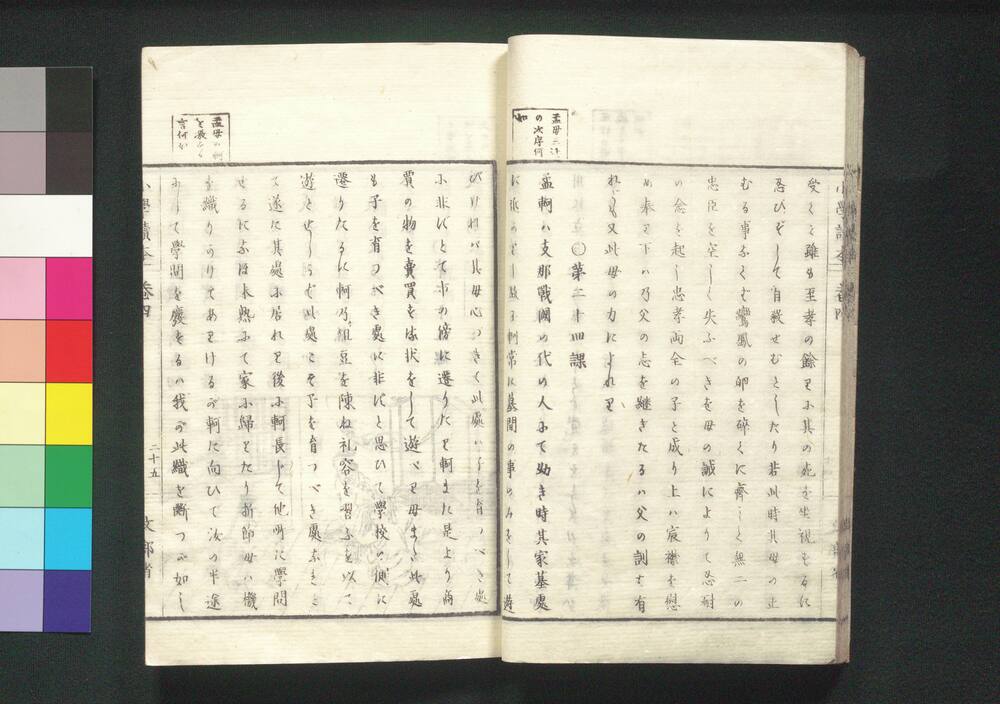 孟母三迁
の次序何
如
受くと雖も至孝の餘りに其の死を坐視するに
忍びずして自殺せむとしたり若此時其母の止
むる事なくば鸞鳳の卵を碎くに齊しく無二の
忠臣を空しく失ふべきを母の誡によりて忍耐
の念を起し忠孝両全の子と成り上ハ宸襟を慰
め奉り下ハ乃父の志を継ぎたるハ父の訓も有
れども又此母の力によれり
○第二十四課
孟軻ハ支那戰國の代の人にて幼き時其家墓處
に して 軻常に墓間の事のみをして遊
孟母の軻
を教ふる
言何如
びければ其母心づきて此處ハ子を育つべき處
に非ずとて市の傍に遷りたり軻また是より商
賈の物を賣買する状をして遊べり母また此處
も子を育つべき處に非ずと思ひて學校の側に
遷りたるに軻乃俎豆を陳ね礼容を習ふを以て
遊とせしらば此處こそ子を育つべき處なれと
て遂に其處に居れり後に軻長じて他所に學問
せるになほ未熟にて家に歸りたり折節母ハ機
を織りかけてありけるが軻に向ひて汝の半途
にして學問を廢するハ我が此織を斷つが如し
小學讀本 巻四
二十五
文部省